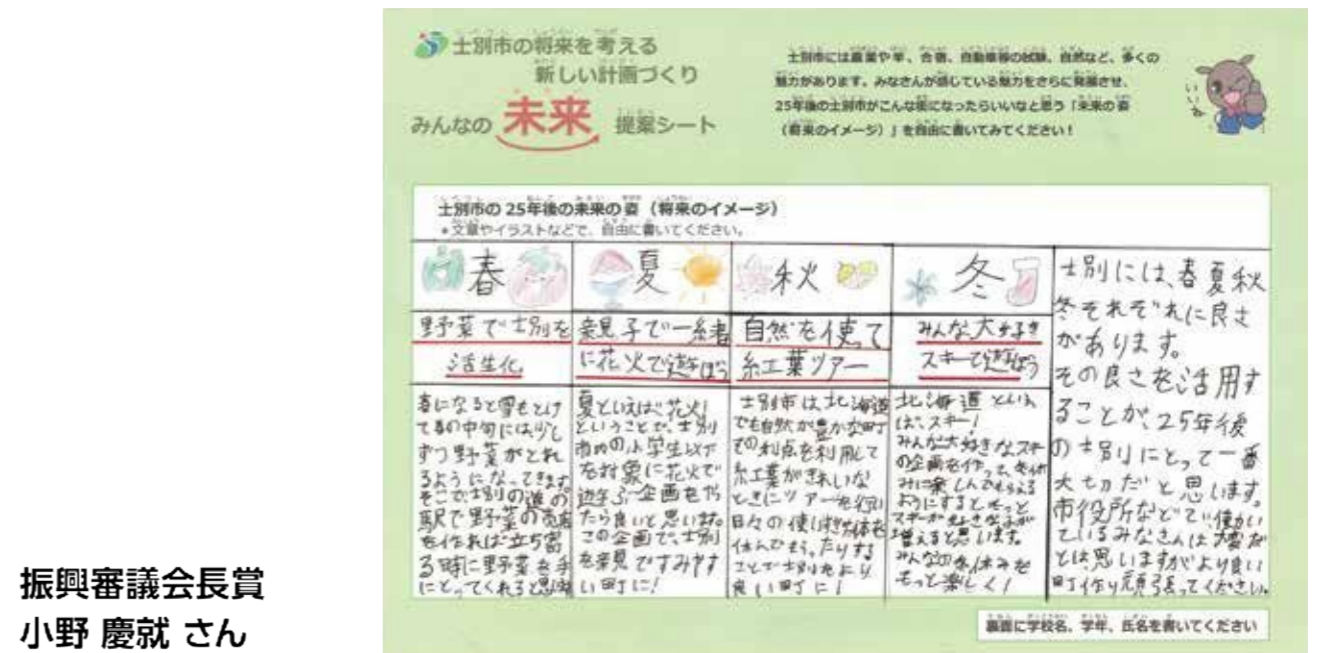 士別市の将来を考える
新しい計画づくり
みんなの 未来 提案シート
士別市には農業や羊、合宿、自動車等の試験、自然など、多くの
魅力があります。みなさんが感じている魅力をさらに発展させ、
25年後の士別市がこんな街になったらいいなと思う「未来の姿
(将来のイメージ)」を自由に書いてみてください!
いいね
士別市の25年後の未来の姿(将来のイメージ)
*文章やイラストなどで、自由に書いてください。
春
野菜で士別を
活生化
春になると雪もとけ
て春の中旬には少し
ずつ野菜がとれ
るようになってきます
そこで士別の道の
駅で野菜の売店
を作れば立ち寄
る時に野菜を手
にとってくれると思
夏
親子で一緒
に花火で遊ぼう
夏といえば花火!
ということで、士別
市内の小学生以下
を対象に花火で
遊ぶ企画をや
たら良いと思います。
この企画で、士別
を発見ですみやす
い町に!
秋
自然を使て
紅葉ツアー
士別市は北海道
でも自然が豊かな町
その利点を利用して
紅葉がきれいな
ときにツアーを行い
日々の体を
休んでもらったりする
ことで士別をより
良い町に!
冬
みんな大好き
スキーで遊ぼう
北海道といえ
ば、スキー!
みんな大好きなスキー
の企画を作って、冬休
みに楽しんでもらえる
ようにするともっと
スキーが好きな子が
増えると思います。
みんなの冬休みを
もっと楽しく!
士別には、春夏秋
冬それぞれに良さ
があります。
その良さを活用す
ることが、25年後
の士別にとって一番
大切だと思います。
市役所などで働い
ているみなさんは大変だ
とは思いますがより良い
町作り頑張ってください。
裏面に学校名、学年、氏名を書いてください
振興審議会長賞
小野 慶就 さん